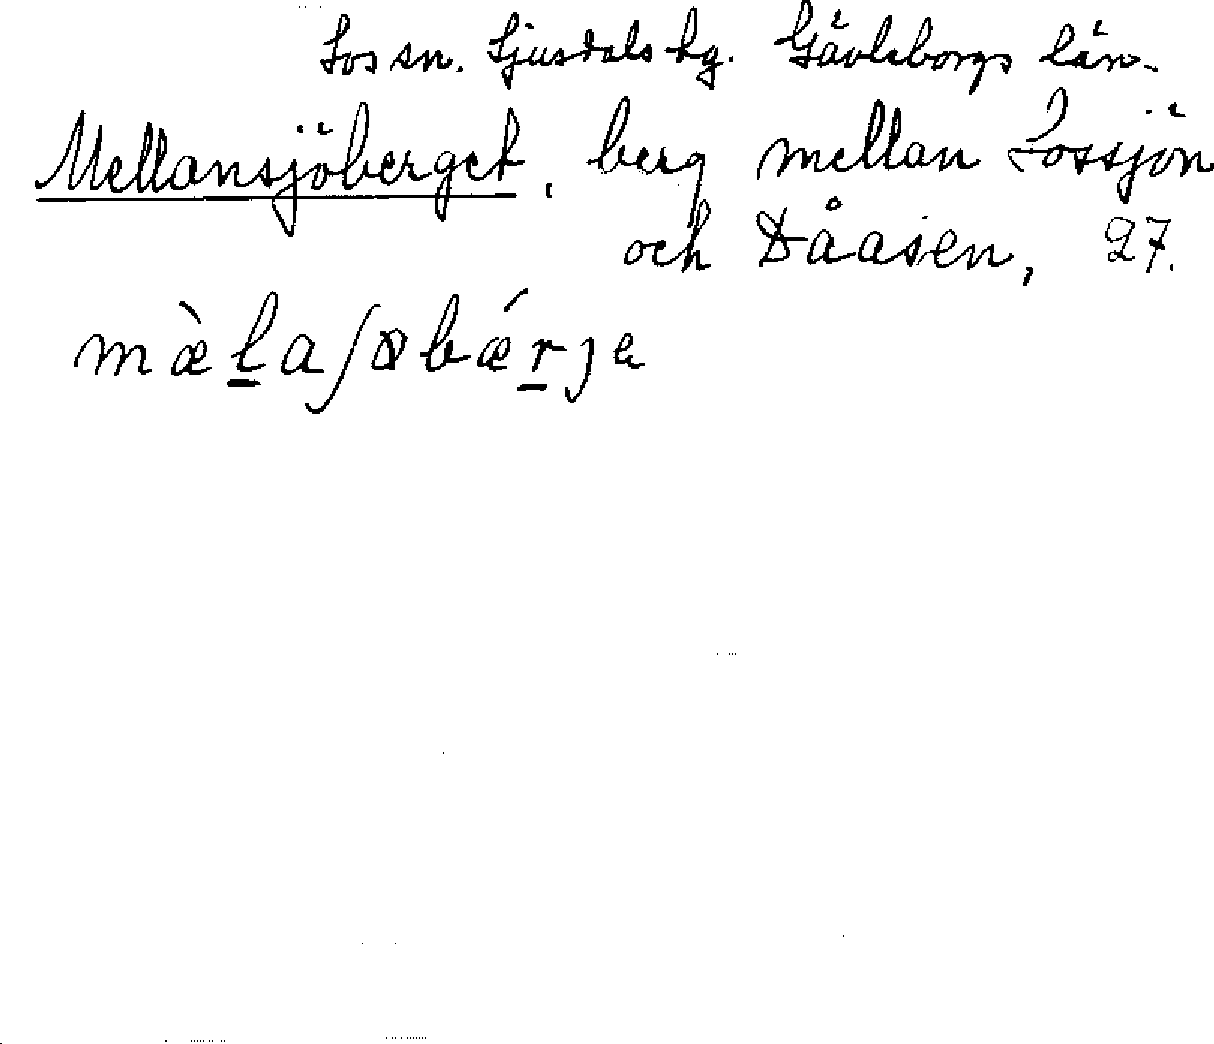 Los sn. Ljusdals hg. Gävleborgs län.
Mellansjöberget, berg mellan Lossjön
och Dåasen, 27.
mæ̀l̲aʃɵbǽr̲ȷe